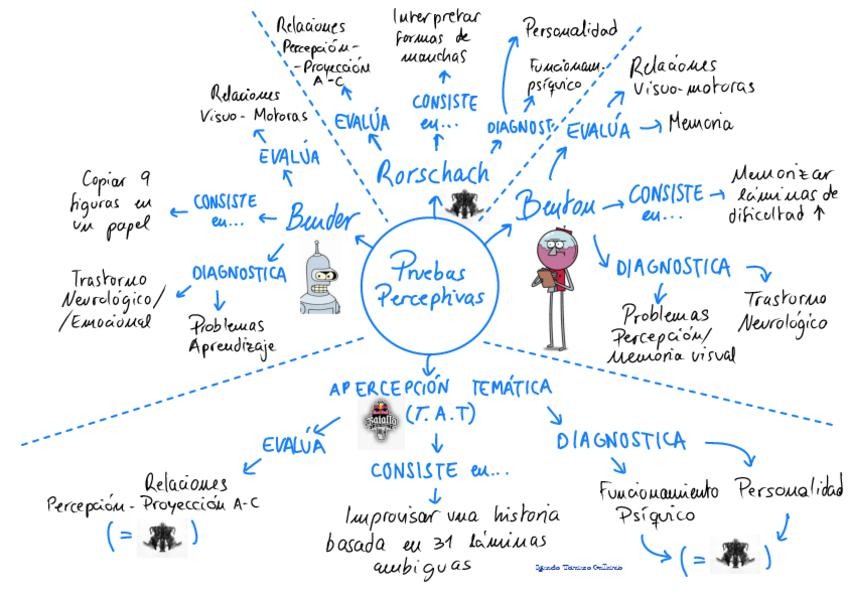 Pruebas
Perceptivas
Rorschach
EVALÚA
Relaciones
Percepción-
-Proyección
A-C
CONSISTE
en...
Interpretar
formas de
manchas
DIAGNOST.
Personalidad
Funcionam.
psíquico
Benton
EVALÚA
Relaciones
Visuo-motoras
Memoria
CONSISTE
en...
Memorizar
láminas de
dificultad ↑
DIAGNOSTICA
Problemas
Percepción/
Memoria visual
Trastorno
Neurológico
Bender
EVALÚA
Relaciones
Visuo-Motoras
CONSISTE
en...
Copiar 9
figuras en
un papel
DIAGNOSTICA
Trastorno
Neurológico/
/Emocional
Problemas
Aprendizaje
APERCEPCIÓN TEMÁTICA
(T.A.T)
EVALÚA
Relaciones
Percepción-Proyección A-C
(= )
CONSISTE en...
Improvisar una historia
basada en 31 láminas
ambiguas
DIAGNOSTICA
Funcionamiento
Psíquico
Personalidad
(= )